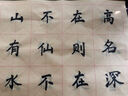 山不在高
有仙则名
水不在深